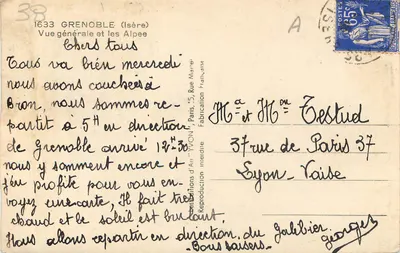 39
A
1633 GRENOBLE (Isère)
Vue générale et les Alpes
65
Chers tous
Tout va bien mercredi
nous avons couchés à
Bron, nous sommes re-
partit à 5H en direction
de Grenoble arrivé 12H30
nous y somment encore et
j'en profite pour vous en-
voyez une carte, Il fait très
chaud et le soleil est brulant.
Nous allons repartir en direction du Galibier.
Bons baisers
Georges
Editions d'Art "YVON", Paris, 15, Rue Martel
Fabrication Française
Reproduction interdite
Ma et Mon Testud
37 rue de Paris 37
Lyon-Vaise